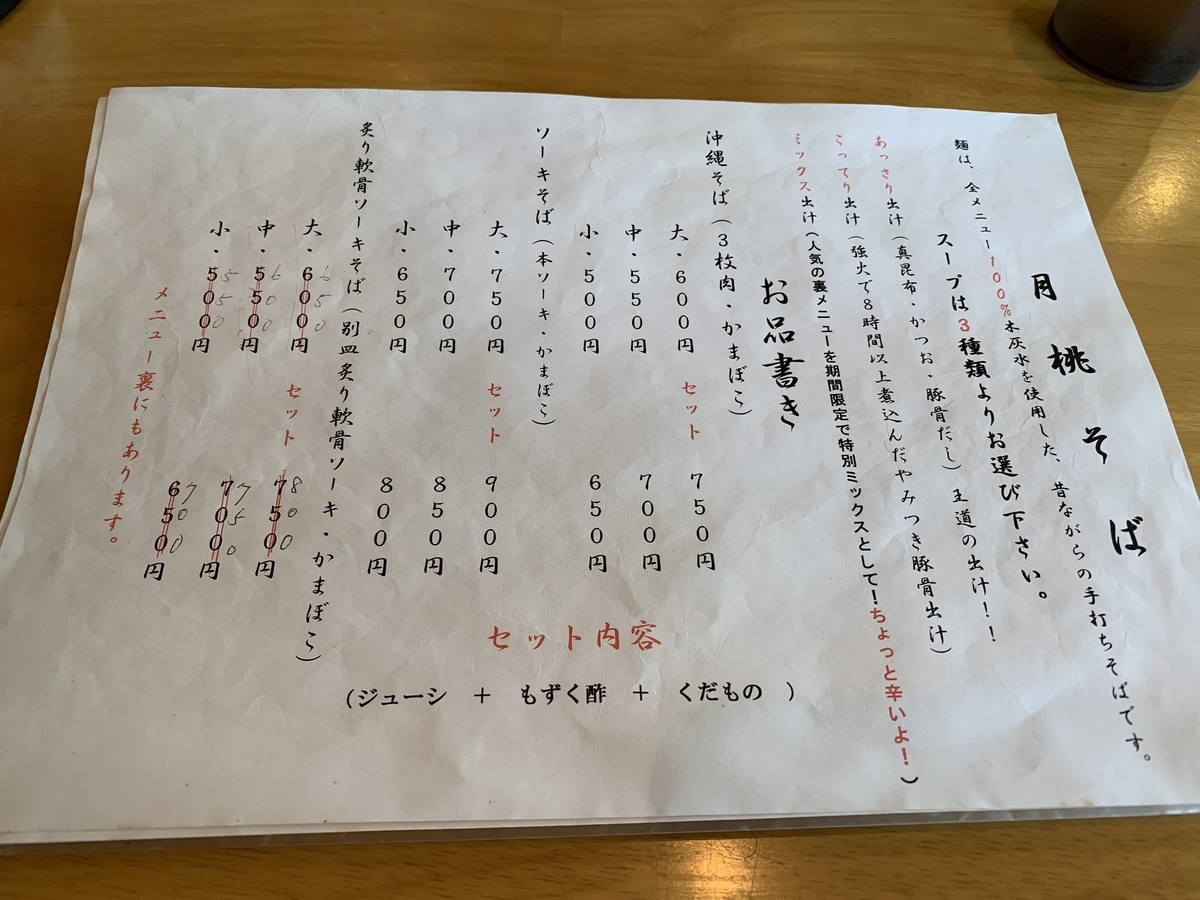 月桃そば
麺は、全メニュー100%木灰水を使用した、昔ながらの手打ちそばです。
スープは3種類よりお選び下さい。
あっさり出汁(真昆布・かつお・豚骨だし)王道の出汁!!
こってり出汁(強火で8時間以上煮込んだやみつき豚骨出汁)
ミックス出汁(人気の裏メニューを期間限定で特別ミックスとして!ちょっと辛いよ!)
お品書き
沖縄そば(3枚肉・かまぼこ)
大・600円 セット 750円
中・550円 700円
小・500円 650円
ソーキそば(本ソーキ・かまぼこ)
大・750円 セット 900円
中・700円 850円
小・650円 800円
炙り軟骨ソーキそば(別皿炙り軟骨ソーキ・かまぼこ)
大・600円 650 セット 750円 800
中・550円 600 700円 750
小・500円 550 650円 700
メニュー裏にもあります。
セット内容
(ジューシ + もずく酢 + くだもの )